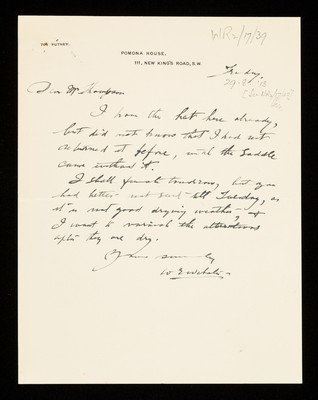 WR2/17/39
PUTNEY.
POMONA HOUSE,
111, NEW KING'S ROAD, S.W.
Friday,
Dear Mr Thompson
I have the hat here already,
but did not know that I had not
returned it before, until the saddle
came without it.
I shall finish tomorrow, but you
had better not send till Tuesday, as
it is not good drying weather, &
I want to varnish the alterations
after they are dry.
Yours sincerely